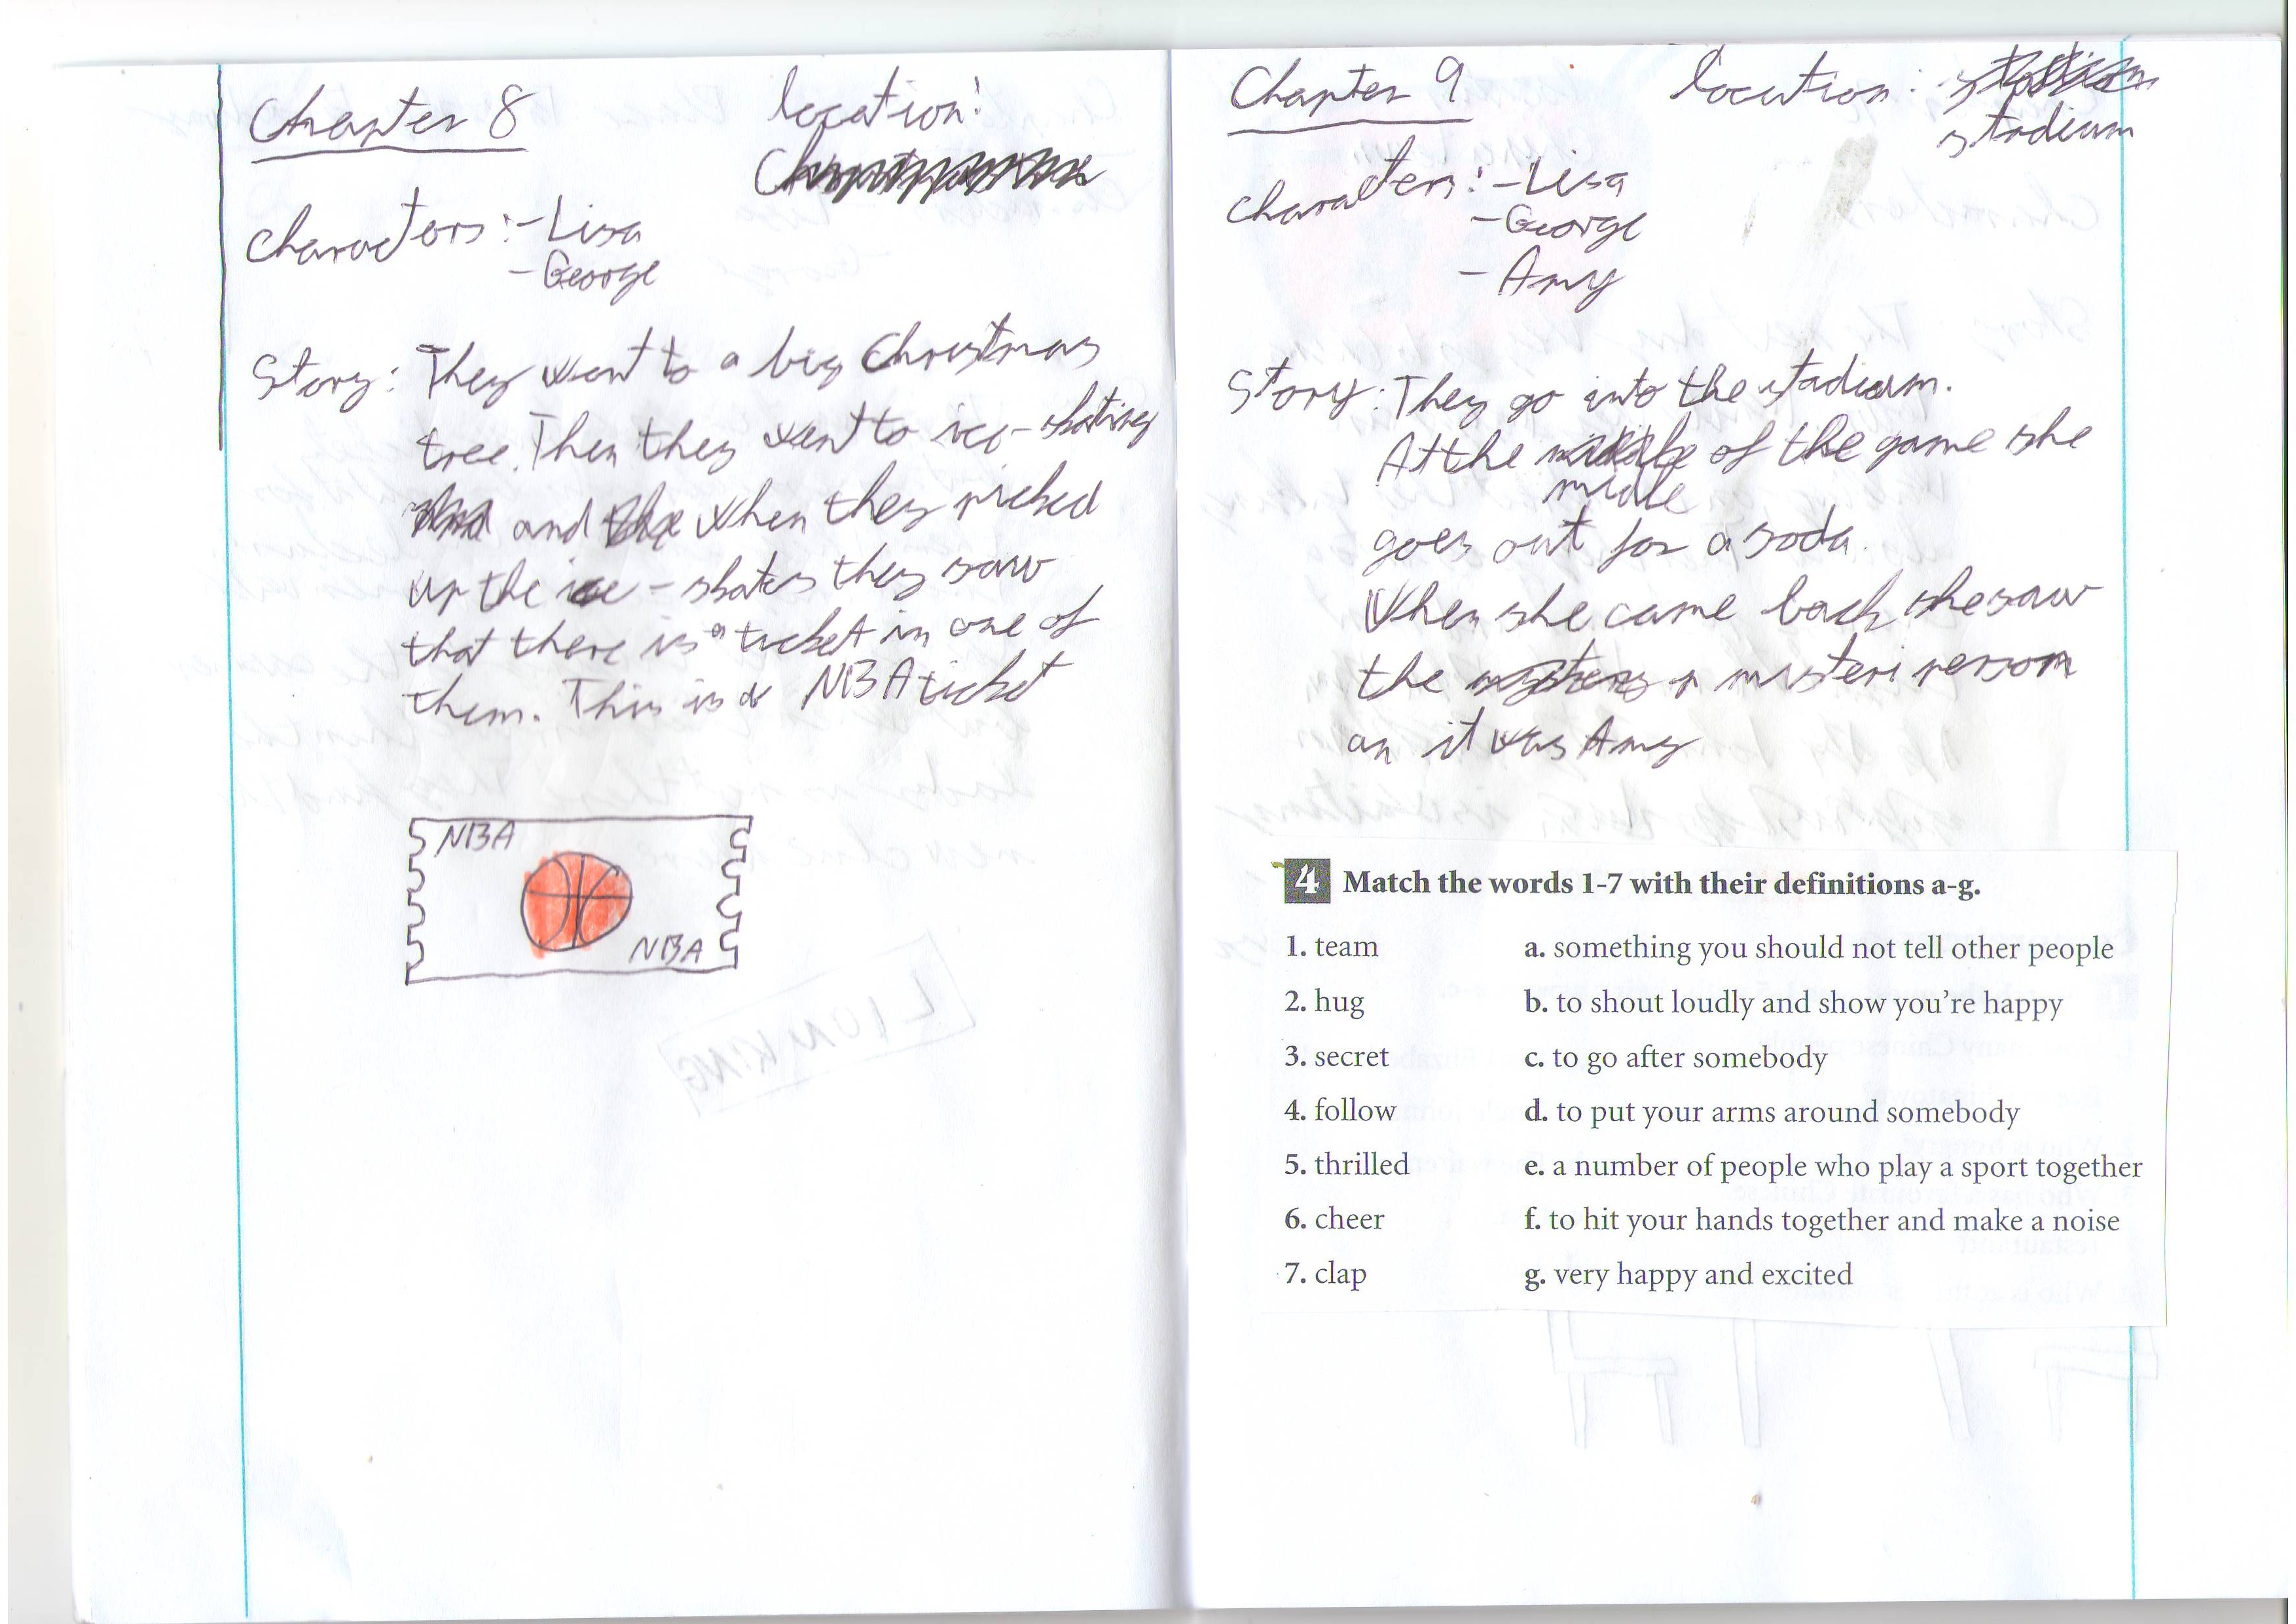 Chapter 8
location:
Characters: - Lisa
- George
Story: They went to a big Christmas
tree. Then they went to ice-skating
and when they picked
up the ice-skates they saw
that there is a ticket in one of
them. This is a NBA ticket
NBA
NBA
LION KING
Chapter 9
location:
stadium
characters: - Lisa
- George
- Amy
Story: They go into the stadium.
At the of the game she
midle
goes out for a soda.
When she came back she saw
the misteri person
an it was Amy
4 Match the words 1-7 with their definitions a-g.
1. team a. something you should not tell other people
2. hug b. to shout loudly and show you're happy
3. secret c. to go after somebody
4. follow d. to put your arms around somebody
5. thrilled e. a number of people who play a sport together
6. cheer f. to hit your hands together and make a noise
7. clap g. very happy and excited